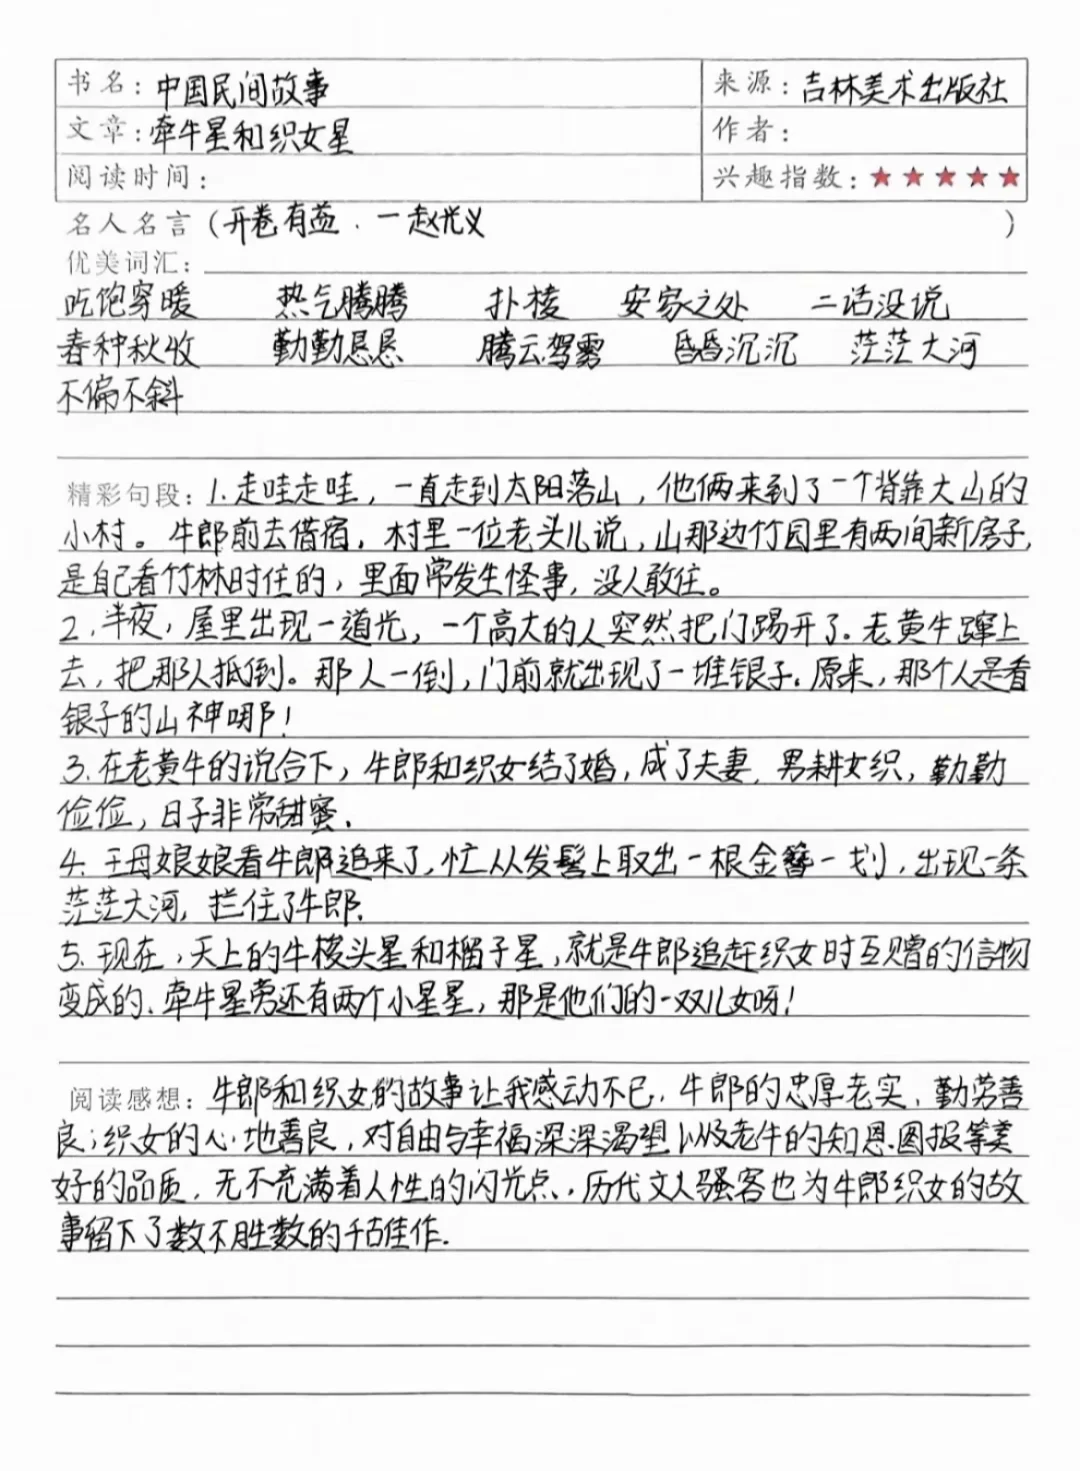 书名：中国民间故事
来源：吉林美术出版社
文章：牵牛星和织女星
作者：
阅读时间：
兴趣指数：★★★★★
名人名言（开卷有益．一赵光义）
优美词汇：
吃饱穿暖 热气腾腾 扑棱 安家之处 二话没说
春种秋收 勤勤恳恳 腾云驾雾 昏昏沉沉 茫茫大河
不偏不斜
精彩句段：1.走哇走哇，一直走到太阳落山，他俩来到了一个背靠大山的
小村。牛郎前去借宿，村里一位老头儿说，山那边竹园里有两间新房子，
是自己看竹林时住的，里面常发生怪事，没人敢住。
2.半夜，屋里出现一道光，一个高大的人突然把门踢开了。老黄牛蹿上
去，把那人抵倒。那人一倒，门前就出现了一堆银子。原来，那个人是看
银子的山神哪！
3.在老黄牛的说合下，牛郎和织女结了婚，成了夫妻．男耕女织，勤勤
俭俭，日子非常甜蜜．
4.王母娘娘看牛郎追来了，忙从发髻上取出一根金簪一划，出现一条
茫茫大河，拦住了牛郎．
5.现在，天上的牛梭头星和榴子星，就是牛郎追赶织女时互赠的信物
变成的．牵牛星旁还有两个小星星，那是他们的一双儿女呀！
阅读感想：牛郎和织女的故事让我感动不已．牛郎的忠厚老实．勤劳善
良；织女的心地善良，对自由与幸福深深渴望以及老牛的知恩图报等美
好的品质．无不充满着人性的闪光点．历代文人骚客也为牛郎织女的故
事留下了数不胜数的千古佳作．